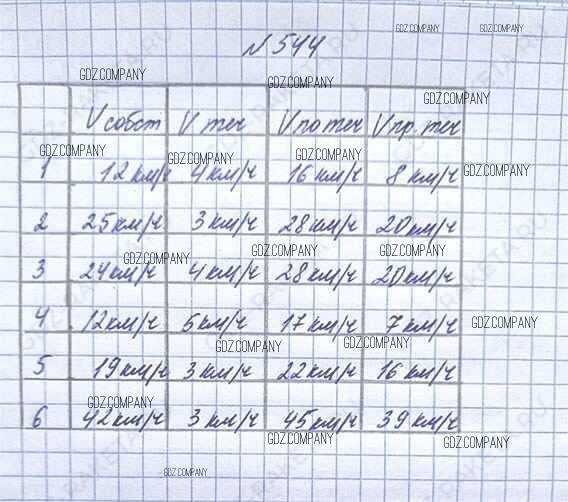 GDZ.COMPANY GDZ.COMPANY
N 544
GDZ.COMPANY GDZ.COMPANY
GDZ.COMPANY
V собст V теч V по теч V пр. теч
GDZ.COMPANY GDZ.COMPANY GDZ.COMPANY
1 12 км/ч 4 км/ч 16 км/ч 8 км/ч GDZ.COMPANY
2 25 км/ч 3 км/ч 28 км/ч 20 км/ч
GDZ.COMPANY GDZ.COMPANY GDZ.COMPANY
3 24 км/ч 4 км/ч 28 км/ч 20 км/ч
4 12 км/ч 6 км/ч 17 км/ч 7 км/ч GDZ.COMPANY
GDZ.COMPANY GDZ.COMPANY
5 19 км/ч 3 км/ч 22 км/ч 16 км/ч
GDZ.COMPANY
6 42 км/ч 3 км/ч 45 км/ч 39 км/ч
GDZ.COMPANY GDZ.COMPANY
GDZ.COMPANY